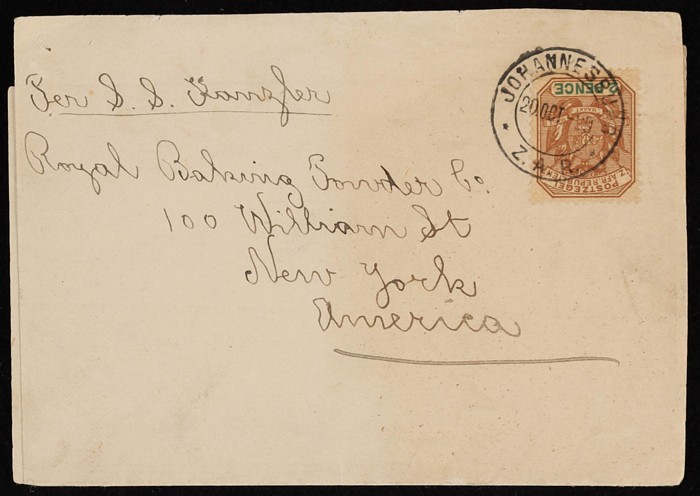 Per S. S. Kanzler
Royal Baking Powder Co.
100 William St
New York
America
JOHANNESBURG
20 OCT
Z.A.R.
2 PENCE
POSTZEGEL
Z. AFR. REPUBLIEK